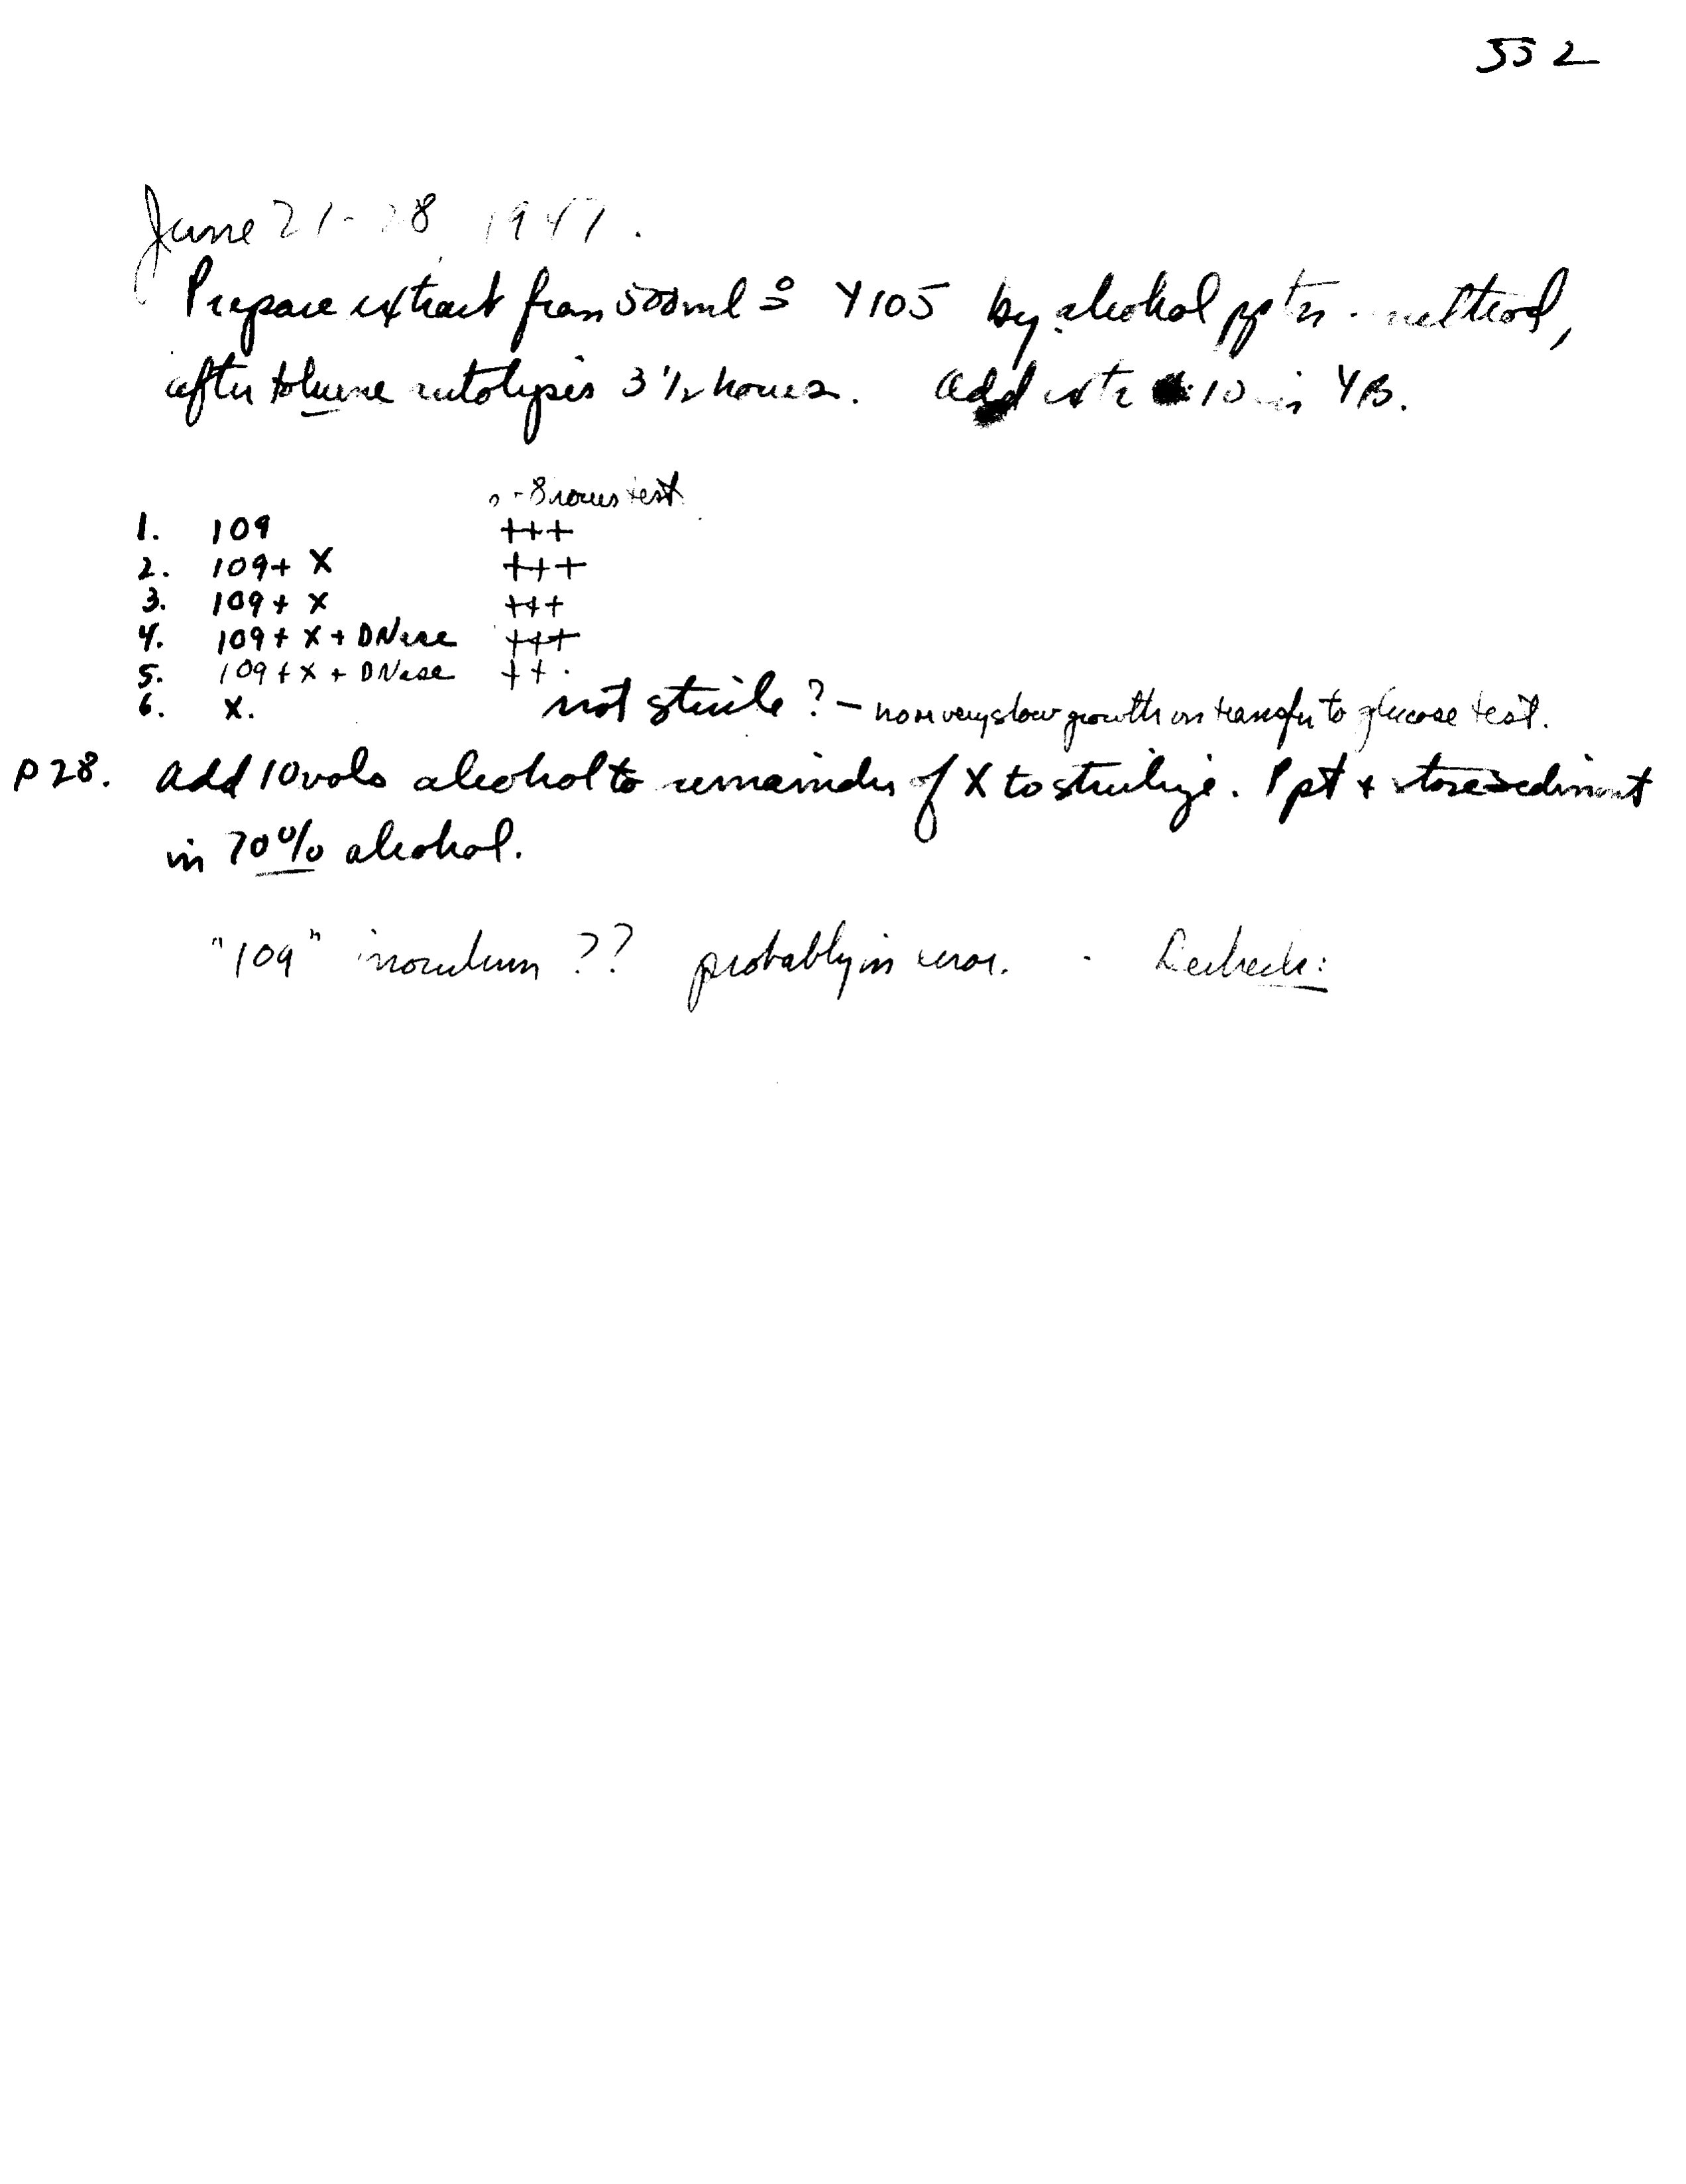 552
June 21-28 1947.
Prepare extract from 500ml Y105 by alcohol pptn. method,
after toluene autolysis 3 1/2 hours. Add 10 in YB.
8 hours test
1. 109 +++
2. 109+ X +++
3. 109 + X +++
4. 109 + X + DNase +++
5. 109 + X + DNase ++.
6. X. not sterile? – no or very slow growth on transfer to glucose test.
P28. Add 10 vols alcohol to remainder of X to sterilize. Ppt + store sediment
in 70% alcohol.
"109" inoculum ?? probably in error. - Recheck: